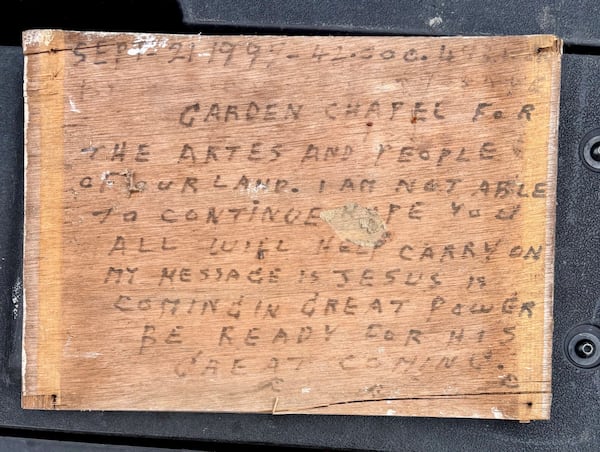 SEPT-21 1997-42.000.4
GARDEN CHAPEL FOR
THE ARTES AND PEOPLE
OF OUR LAND. I AM NOT ABLE
TO CONTINUE HOPE YOU
ALL WILL HELP CARRY ON
MY MESSAGE IS JESUS IS
COMING IN GREAT POWER
BE READY FOR HIS
GREAT COMING.